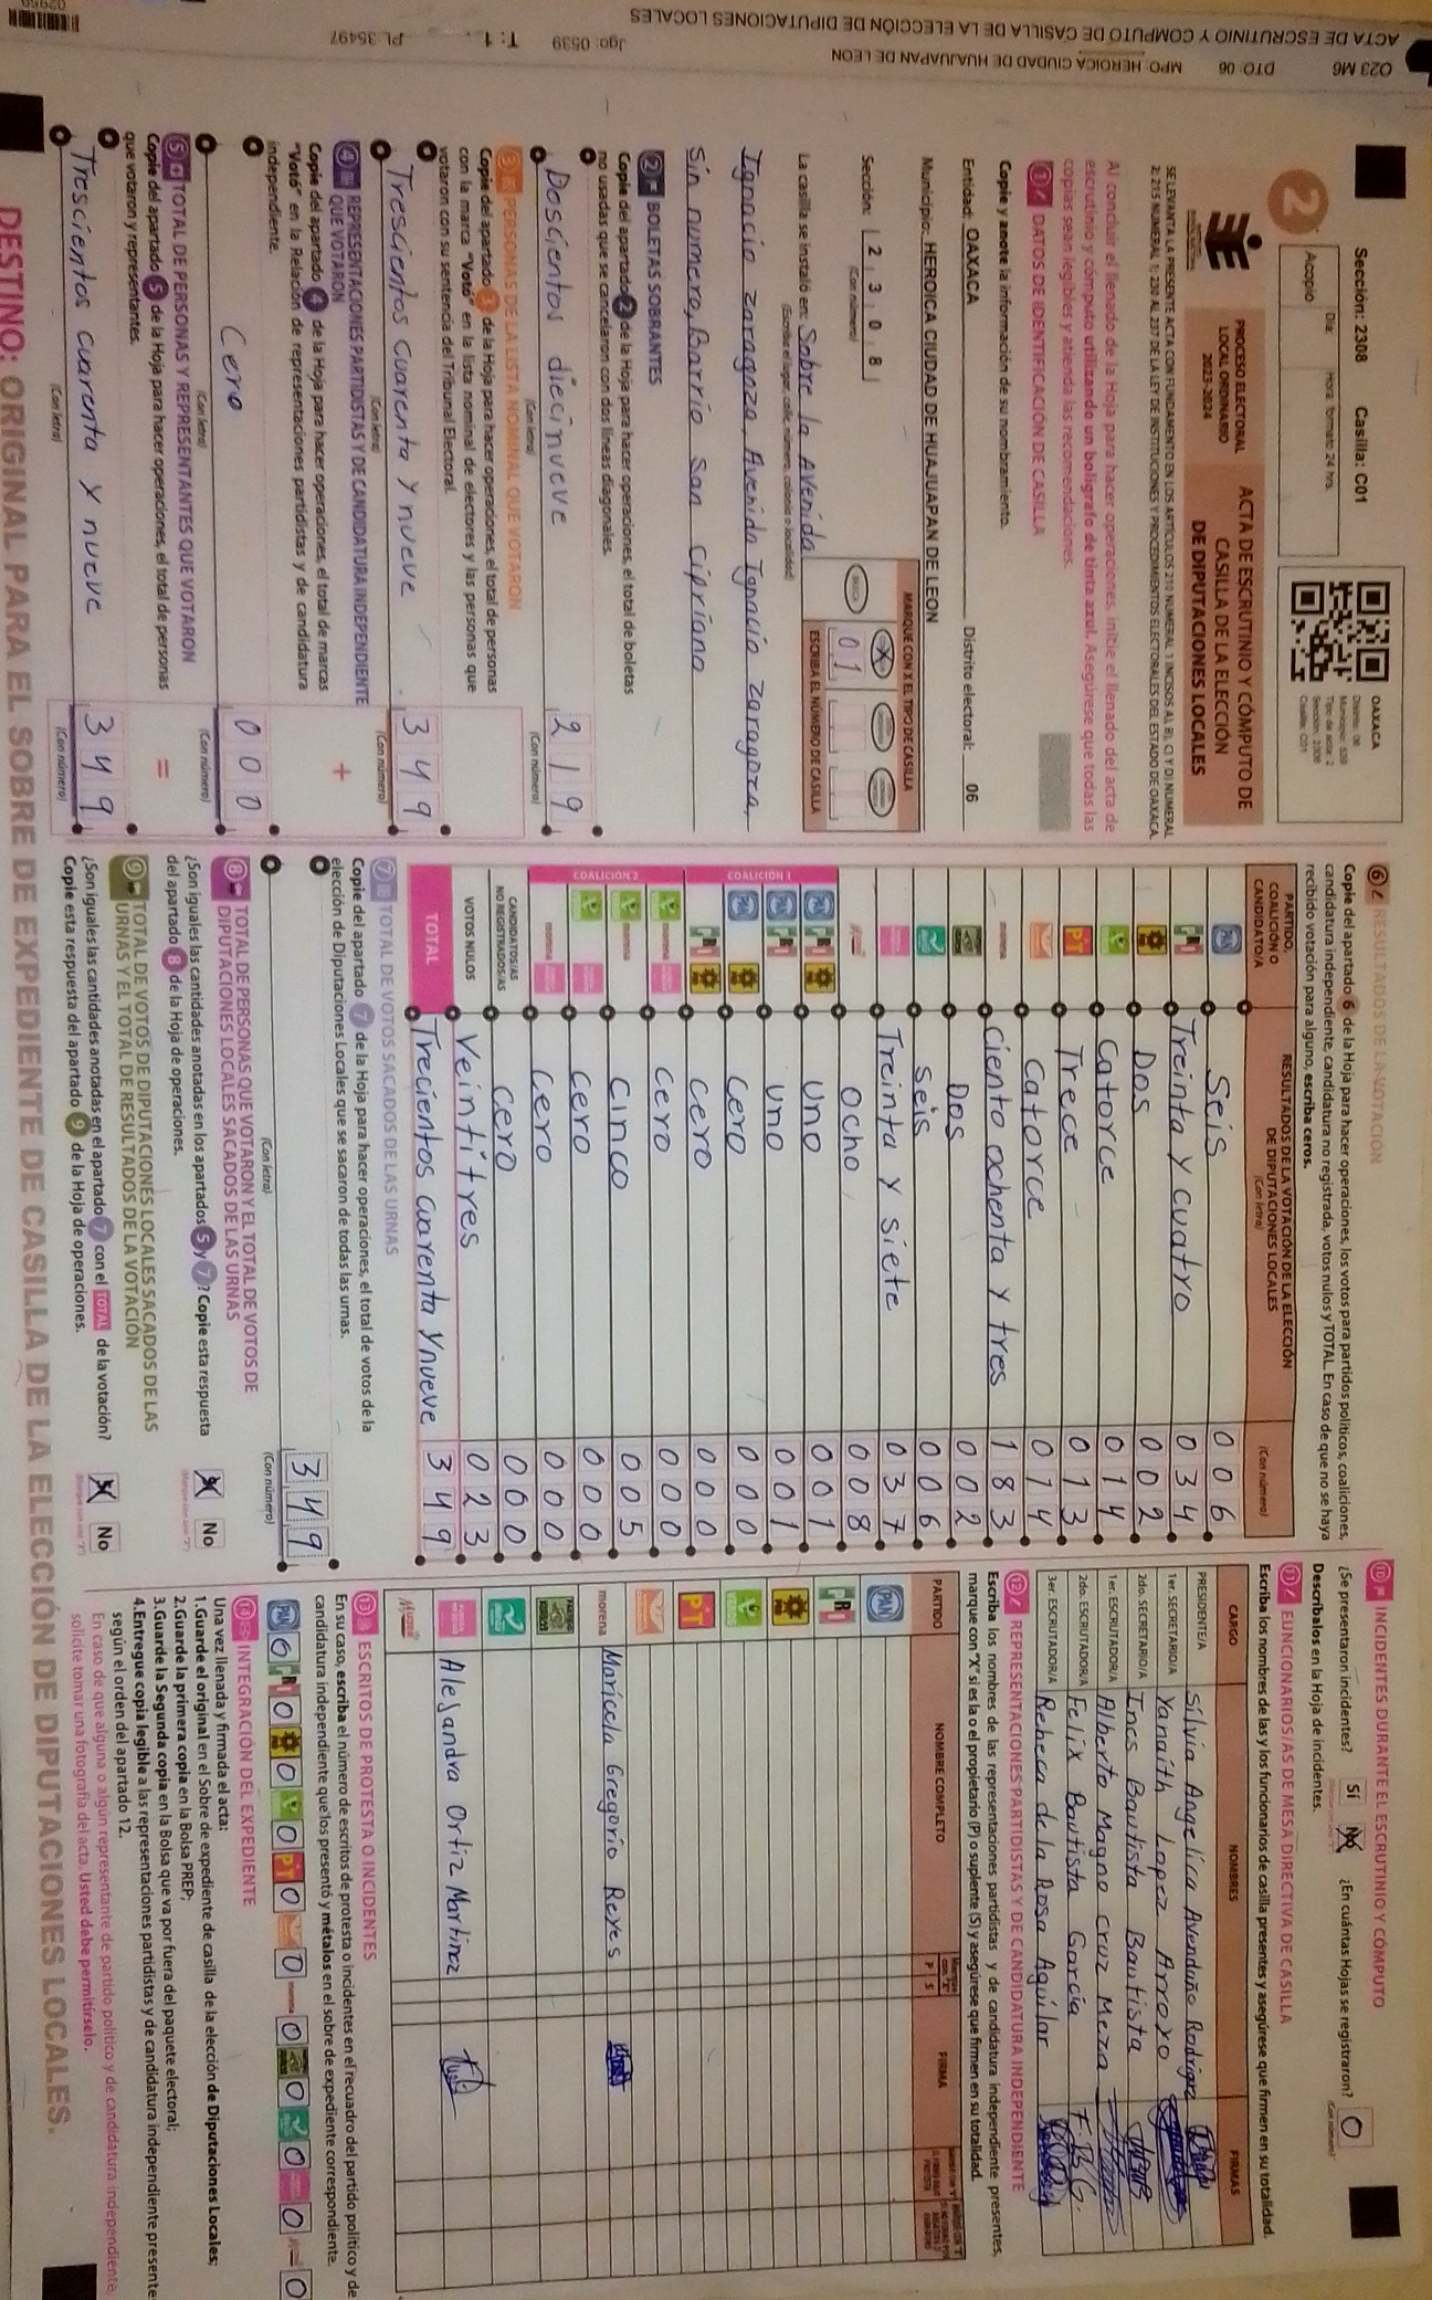 O23 M6 DTO: 06 MPO: HEROICA CIUDAD DE HUAJUAPAN DE LEON
ACTA DE ESCRUTINIO Y COMPUTO DE CASILLA DE LA ELECCIÓN DE DIPUTACIONES LOCALES
Jgo: 0539 T: 1 PL 35497
Sección: 2308 Casilla: C01
2
Acopio
Día: Hora: formato 24 hrs.
OAXACA
Distrito: 06
Municipio: 539
Tipo de acta: 2
Sección: 2308
Casilla: C01
PROCESO ELECTORAL
LOCAL ORDINARIO
2023-2024
ACTA DE ESCRUTINIO Y CÓMPUTO DE
CASILLA DE LA ELECCIÓN
DE DIPUTACIONES LOCALES
SE LEVANTA LA PRESENTE ACTA CON FUNDAMENTO EN LOS ARTÍCULOS 210 NUMERAL 1 INCISOS A), B), C) Y D) NUMERAL
2; 215 NUMERAL 1; 230 AL 237 DE LA LEY DE INSTITUCIONES Y PROCEDIMIENTOS ELECTORALES DEL ESTADO DE OAXACA.
Al concluir el llenado de la Hoja para hacer operaciones, inicie el llenado del acta de
escrutinio y cómputo utilizando un bolígrafo de tinta azul. Asegúrese que todas las
copias sean legibles y atienda las recomendaciones.
1 DATOS DE IDENTIFICACIÓN DE CASILLA
Copie y anote la información de su nombramiento.
Entidad: OAXACA Distrito electoral: 06
Municipio: HEROICA CIUDAD DE HUAJUAPAN DE LEON
Sección: 2 3 0 8
(Con número)
MARQUE CON X EL TIPO DE CASILLA
BÁSICA X
ESCRIBA EL NÚMERO DE CASILLA
0 1
La casilla se instaló en: Sobre la Avenida
(Escriba el lugar, calle, número, colonia o localidad)
Ignacio zaragoza, Avenida Ignacio zaragoza,
sin numero, Barrio San Cipriano
2 BOLETAS SOBRANTES
Copie del apartado 2 de la Hoja para hacer operaciones, el total de boletas
no usadas que se cancelaron con dos líneas diagonales.
Doscientos diecinueve 2 1 9
(Con letra) (Con número)
3 PERSONAS DE LA LISTA NOMINAL QUE VOTARON
Copie del apartado 3 de la Hoja para hacer operaciones, el total de personas
con la marca "Votó" en la lista nominal de electores y las personas que
votaron con su sentencia del Tribunal Electoral.
Trescientos cuarenta y nueve 3 4 9
(Con letra) (Con número)
+
4 REPRESENTACIONES PARTIDISTAS Y DE CANDIDATURA INDEPENDIENTE
QUE VOTARON
Copie del apartado 4 de la Hoja para hacer operaciones, el total de marcas
"Votó" en la Relación de representaciones partidistas y de candidatura
independiente.
Cero 0 0 0
(Con letra) (Con número)
=
5 TOTAL DE PERSONAS Y REPRESENTANTES QUE VOTARON
Copie del apartado 5 de la Hoja para hacer operaciones, el total de personas
que votaron y representantes.
Trescientos cuarenta y nueve 3 4 9
(Con letra) (Con número)
6 RESULTADOS DE LA VOTACIÓN
Copie del apartado 6 de la Hoja para hacer operaciones, los votos para partidos políticos, coaliciones,
candidatura independiente, candidatura no registrada, votos nulos y TOTAL. En caso de que no se haya
recibido votación para alguno, escriba ceros.
PARTIDO, COALICIÓN O CANDIDATO/A
RESULTADOS DE LA VOTACIÓN DE LA ELECCIÓN DE DIPUTACIONES LOCALES
(Con letra) (Con número)
PAN Seis 0 0 6
PRI Treinta y cuatro 0 3 4
PRD Dos 0 0 2
VERDE Catorce 0 1 4
PT Trece 0 1 3
Catorce 0 1 4
morena Ciento ochenta y tres 1 8 3
Dos 0 0 2
Seis 0 0 6
Treinta y siete 0 3 7
Ocho 0 0 8
COALICIÓN 1
PAN PRI PRD Uno 0 0 1
PAN PRI Uno 0 0 1
PAN PRD Cero 0 0 0
PRI PRD Cero 0 0 0
COALICIÓN 2
VERDE morena Cero 0 0 0
VERDE morena Cinco 0 0 5
VERDE Cero 0 0 0
morena Cero 0 0 0
CANDIDATOS/AS NO REGISTRADOS/AS Cero 0 0 0
VOTOS NULOS Veintitres 0 2 3
TOTAL Trecientos cuarenta y nueve 3 4 9
7 TOTAL DE VOTOS SACADOS DE LAS URNAS
Copie del apartado 7 de la Hoja para hacer operaciones, el total de votos de la
elección de Diputaciones Locales que se sacaron de todas las urnas.
3 4 9
(Con letra) (Con número)
8 TOTAL DE PERSONAS QUE VOTARON Y EL TOTAL DE VOTOS DE
DIPUTACIONES LOCALES SACADOS DE LAS URNAS
¿Son iguales las cantidades anotadas en los apartados 5 y 7? Copie esta respuesta
del apartado 8 de la Hoja de operaciones.
X No
9 TOTAL DE VOTOS DE DIPUTACIONES LOCALES SACADOS DE LAS
URNAS Y EL TOTAL DE RESULTADOS DE LA VOTACIÓN
¿Son iguales las cantidades anotadas en el apartado 7 con el TOTAL de la votación?
Copie esta respuesta del apartado 9 de la Hoja de operaciones.
X No
10 INCIDENTES DURANTE EL ESCRUTINIO Y CÓMPUTO
¿Se presentaron incidentes? Sí No ¿En cuántas Hojas se registraron? 0
(Con número)
Descríbalos en la Hoja de incidentes.
11 FUNCIONARIOS/AS DE MESA DIRECTIVA DE CASILLA
Escriba los nombres de las y los funcionarios de casilla presentes y asegúrese que firmen en su totalidad.
CARGO NOMBRES FIRMAS
PRESIDENTE/A Silvia Angelica Avendaño Rodriguez
1er. SECRETARIO/A Yanaith Lopez Arroyo
2do. SECRETARIO/A Ines Bautista Bautista
1er. ESCRUTADOR/A Alberto Magno Cruz Meza
2do. ESCRUTADOR/A Felix Bautista García F.B.G.
3er. ESCRUTADOR/A Rebeca de la Rosa Aguilar
12 REPRESENTACIONES PARTIDISTAS Y DE CANDIDATURA INDEPENDIENTE
Escriba los nombres de las representaciones partidistas y de candidatura independiente presentes,
marque con "X" si es la o el propietario (P) o suplente (S) y asegúrese que firmen en su totalidad.
PARTIDO NOMBRE COMPLETO P S FIRMA
PAN
PRI
PRD
VERDE
PT
morena Maricela Gregorio Reyes
Alejandra Ortiz Martinez
13 ESCRITOS DE PROTESTA O INCIDENTES
En su caso, escriba el número de escritos de protesta o incidentes en el recuadro del partido político y de
candidatura independiente que los presentó y métalos en el sobre de expediente correspondiente.
PAN 0 PRI 0 PRD 0 VERDE 0 PT 0 0 morena 0 0 0 0 0
14 INTEGRACIÓN DEL EXPEDIENTE
Una vez llenada y firmada el acta:
1.Guarde el original en el Sobre de expediente de casilla de la elección de Diputaciones Locales;
2.Guarde la primera copia en la Bolsa PREP;
3.Guarde la Segunda copia en la Bolsa que va por fuera del paquete electoral;
4.Entregue copia legible a las representaciones partidistas y de candidatura independiente presente
según el orden del apartado 12.
En caso de que alguna o algún representante de partido político y de candidatura independiente,
solicite tomar una fotografía del acta. Usted debe permitírselo.
DESTINO: ORIGINAL PARA EL SOBRE DE EXPEDIENTE DE CASILLA DE LA ELECCIÓN DE DIPUTACIONES LOCALES.